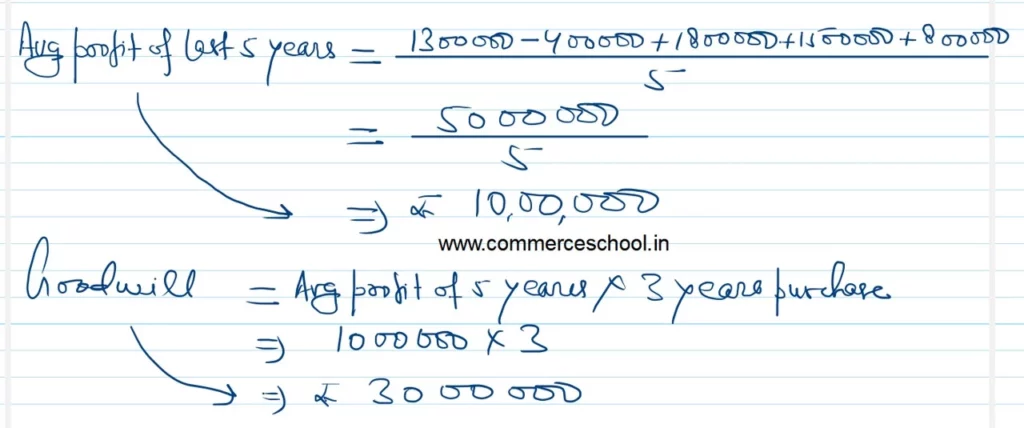 Avg profit of last 5 years = 1300000 - 400000 + 1800000 + 1500000 + 800000
5
= 5000000
5
⇒ ₹ 10,00,000
www.commerceschool.in
Goodwill = Avg profit of 5 years × 3 years purchase
⇒ 1000000 × 3
⇒ ₹ 3000000